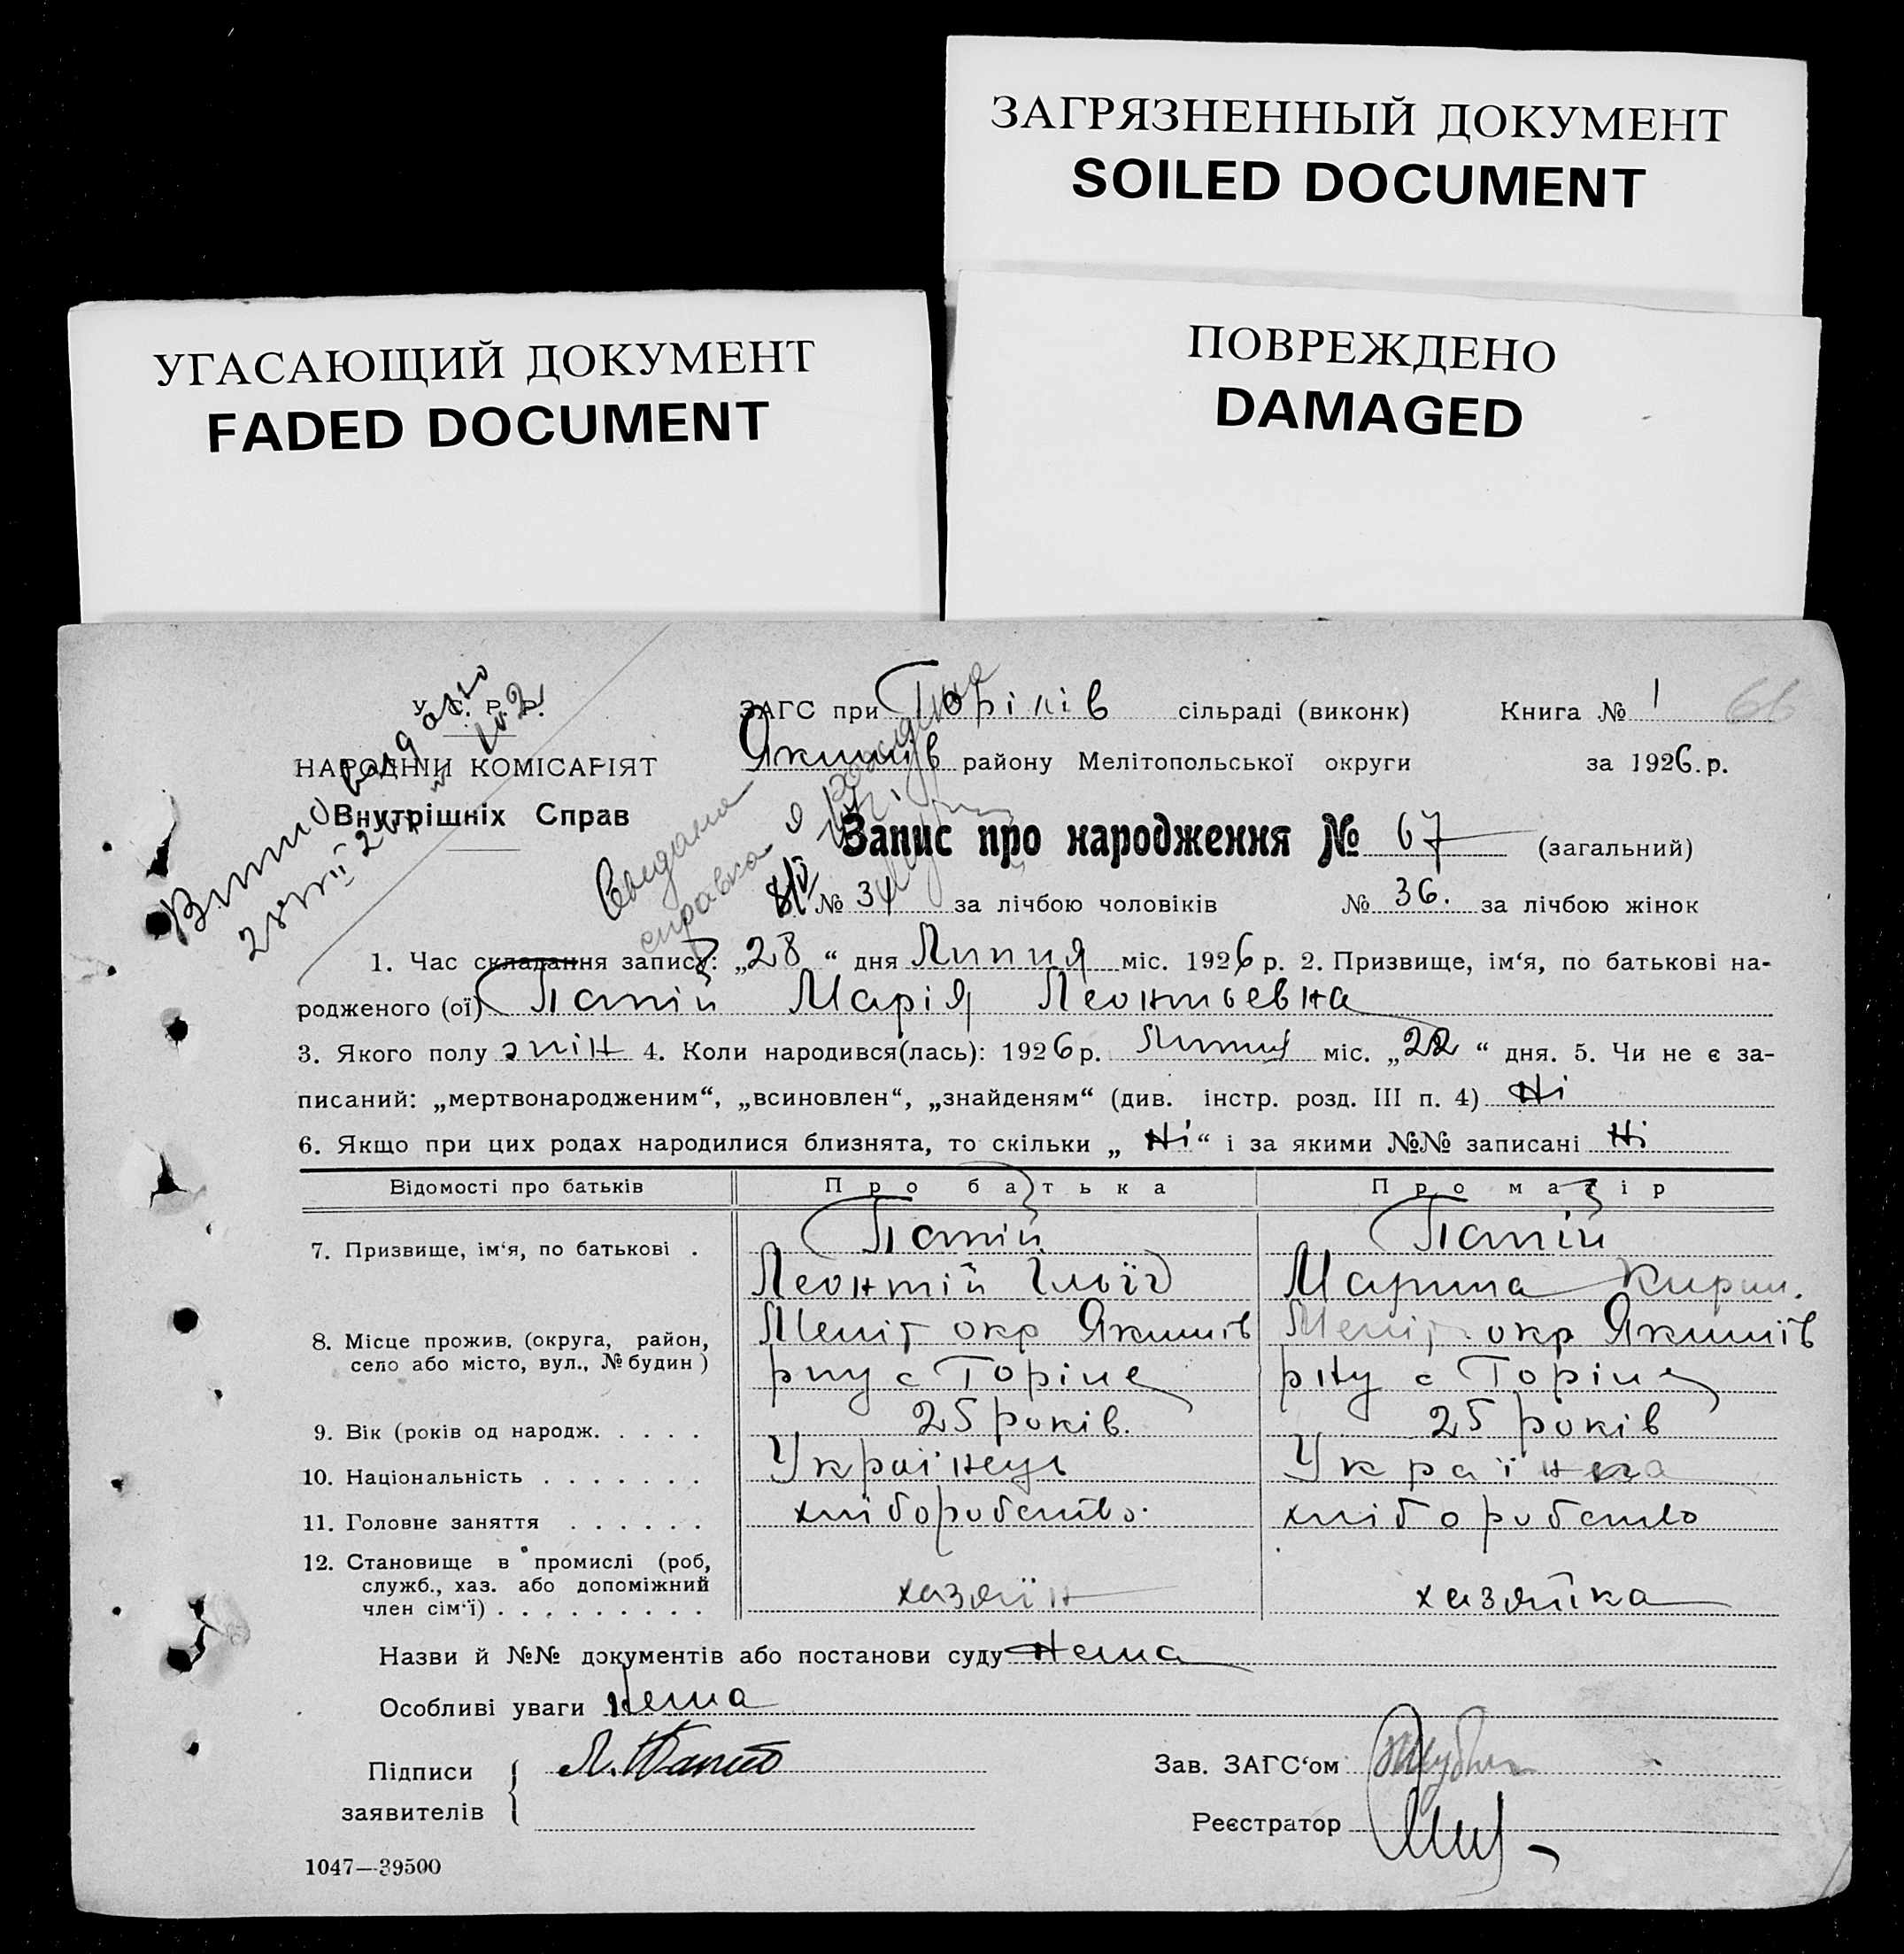 ЗАГРЯЗНЕННЫЙ ДОКУМЕНТ
SOILED DOCUMENT
УГАСАЮЩИЙ ДОКУМЕНТ
FADED DOCUMENT
ПОВРЕЖДЕНО
DAMAGED
У. С. Р. Р.
НАРОДНІЙ КОМІСАРІЯТ
Внутрішніх Справ
ЗАГС при Горілів сільраді (виконк) Книга № 1 66
Якимів району Мелітопольської округи за 1926.р.
Видана
справка
Запис про народження № 67 (загальний)
№ 34 за лічбою чоловіків № 36. за лічбою жінок
1. Час складання запису: „28 “ дня Липня міс. 1926 р. 2. Призвище, ім‘я, по батькові на-
родженого (ої) Папій Марія Леонтьевна
3. Якого полу жін 4. Коли народився(лась): 1926 р. Липня міс. „22 “ дня. 5. Чи не є за-
писаний: „мертвонародженим“, „всиновлен“, „знайденям“ (див. інстр. розд. III п. 4) Ні
6. Якщо при цих родах народилися близнята, то скільки „ Ні “ і за якими №№ записані Ні
Відомості про батьків Про батька Про матір
7. Призвище, ім‘я, по батькові . Папій Папій
Леонтій Ілльїч Марина Кирил.
8. Місце прожив. (округа, район, Меліт окр Якимів Меліт окр Якимів
село або місто, вул., № будин ) рну с Горіле рну с Горіле
9. Вік (років од народж. . . . . 25 років. 25 років
10. Національність . . . . . . . Українець Українка
11. Головне заняття . . . . . . хліборобство. хліборобство
12. Становище в промислі (роб,
служб., хаз. або допоміжний
член сім‘ї) . . . . . . . . . хазяїн хазяйка
Назви й №№ документів або постанови суду Нема
Особливі уваги Нема
Підписи
заявителів
Л. Папій
Зав. ЗАГС‘ом
Реєстратор
1047—39500